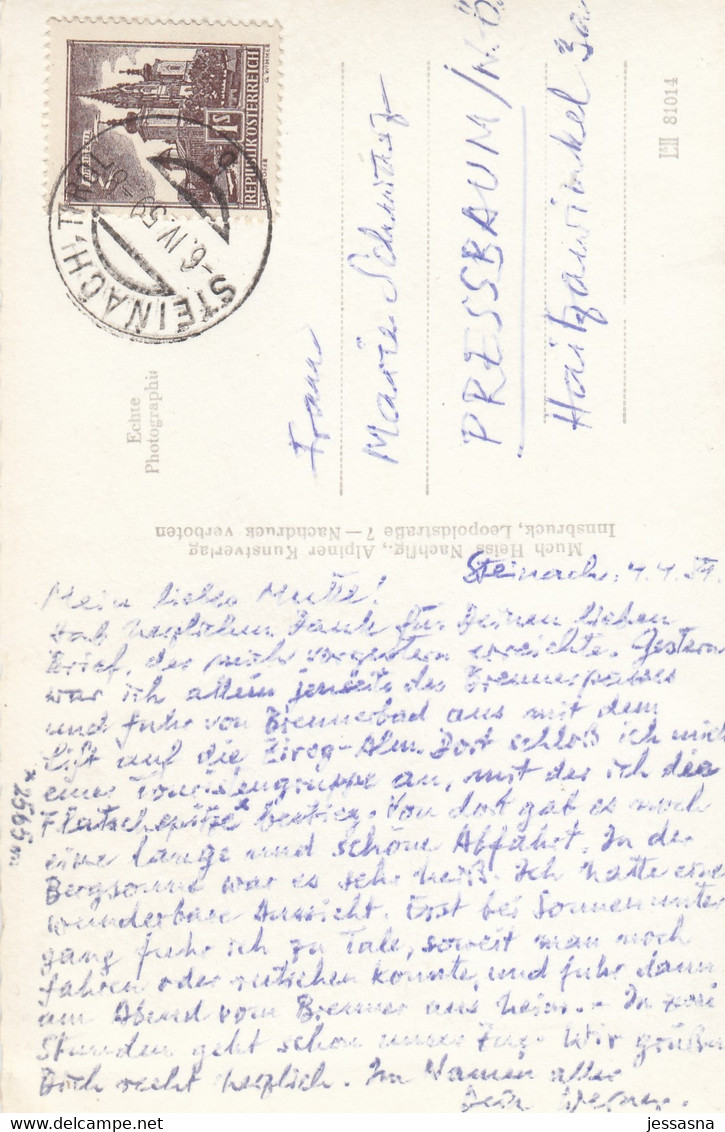 REPUBLIK ÖSTERREICH
1S
MARIAZELL
G. WIMMER
STEINACH, TIROL
-6.IV.59-8
Echte
Photographie
Frau
Marie Schwarz
PRESSBAUM/N.Ö.
Haitzawinkel 3a
L II 81014
Much Heiss Nachflg., Alpiner Kunstverlag
Innsbruck, Leopoldstraße 7 — Nachdruck verboten
Steinach, 4.4.59.
Mein liebes Mutterl!
Hab herzlichen Dank für Deinen lieben
Brief, der mich vorgestern erreichte. Gestern
war ich allein jenseits des Brennerpasses
und fuhr von Brennerbad aus mit dem
Lift auf die Zirog-Alm. Dort schloß ich mich
einer Touristengruppe an, mit der ich die
Flatschspitze* bestieg. Von dort gab es noch
eine lange und schöne Abfahrt. In der
Bergsonne war es sehr heiß. Ich hatte eine
wunderbare Aussicht. Erst bei Sonnenunter-
gang fuhr ich zu Tale, soweit man noch
fahren oder rutschen konnte, und fuhr dann
am Abend vom Brenner aus heim. - In zwei
Stunden geht schon unser Zug. Wir grüßen
Dich recht herzlich. Im Namen aller
Dein Werner.
* 2565 m
jessasna